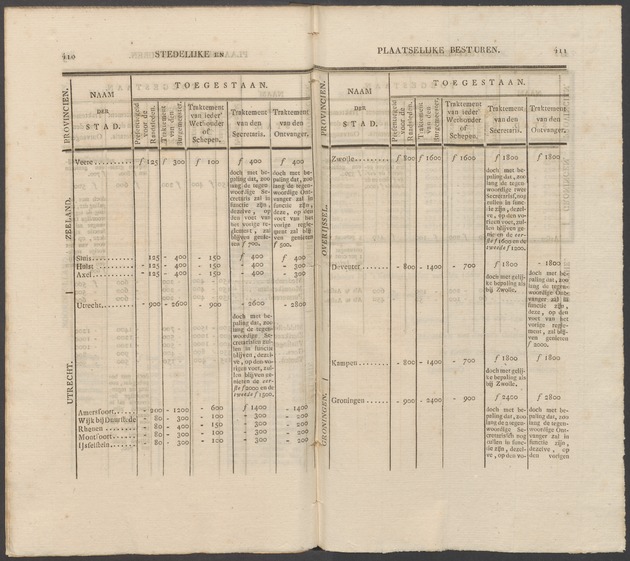 210
STEDELIJKE EN
PROVINCIEN.
NAAM
DER
STAD.
TOEGESTAAN.
Presentiegeld
voor de
Raadsleden.
Traktement
van den
Burgemeester.
Traktement
van ieder'
Wethouder
of
Schepen.
Traktement
van den
Secretaris.
Traktement
van den
Ontvanger.
ZEELAND.
Veere ƒ 125 ƒ 300 ƒ 100 ƒ 400 ƒ 400
doch met be-
paling dat, zoo
lang de tegen-
woordige
Secretaris zal in
functie zijn,
dezelve, op
den voet van
het vorige re-
glement, zal
blijven genie-
ten ƒ 700.
doch met be-
paling dat, zoo
lang de tegen-
woordige Ont-
vanger zal in
functie zijn,
deze, op den
voet van het
vorige regle-
ment zal blij-
ven genieten
ƒ 500.
Sluis - 125 - 400 - 150 ƒ 400 ƒ 400
Hulst - 125 - 400 - 150 - 400 - 300
Axel - 125 - 400 - 150 - 400 - 300
UTRECHT.
Utrecht - 900 - 2600 - 900 - 2600 - 2800
doch met be-
paling dat, zoo
lang de tegen-
woordige twee
Secretarissen zul-
len in functie
blijven, dezel-
ve, op den vo-
rigen voet, zul-
len blijven ge-
nieten de eer-
ste ƒ 2000 en de
tweede ƒ 1500.
Amersfoort - 200 - 1200 - 600 ƒ 1400 - 1400
Wijk bij Duurstede - 80 - 300 - 100 - 300 - 200
Rhenen - 80 - 400 - 150 - 300 - 200
Montfoort - 80 - 300 - 100 - 300 - 200
IJsselstein - 80 - 300 - 100 - 300 - 200
PLAATSELIJKE BESTUREN.
211
PROVINCIEN.
NAAM
DER
STAD.
TOEGESTAAN.
Presentiegeld
voor de
Raadsleden.
Traktement
van den
Burgemeester.
Traktement
van ieder'
Wethouder
of
Schepen.
Traktement
van den
Secretaris.
Traktement
van den
Ontvanger.
OVERIJSSEL.
Zwolle ƒ 800 ƒ 1600 ƒ 1600 ƒ 1800 ƒ 1800
doch met be-
paling dat, zoo
lang de tegen-
woordige twee
Secretarissen nog
zullen in functie
zijn, dezel-
ve, op den vo-
rigen voet, zul-
len blijven ge-
nieten de eer-
ste ƒ 1600 en de
tweede ƒ 1200.
Deventer - 800 - 1400 - 700 ƒ 1800 - 1800
doch met gelij-
ke bepaling als
bij Zwolle.
doch met be-
paling dat, zoo
lang de tegen-
woordige Ont-
vanger zal in
functie zijn,
deze, op den
voet van het
vorige regle-
ment, zal blij-
ven genieten
ƒ 2000.
Kampen - 800 - 1400 - 700 ƒ 1800 ƒ 1800
doch met gelij-
ke bepaling als
bij Zwolle.
GRONINGEN.
Groningen - 900 - 2400 - 900 ƒ 2400 ƒ 2800
doch met be-
paling dat, zoo
lang de 2 tegen-
woordige Se-
cretarissen nog
zullen in functie
zijn, dezel-
ve, op den vo-
doch met be-
paling dat, zoo
lang de tegen-
woordige Ont-
vanger zal in
functie zijn,
dezelve, op
den vorigen